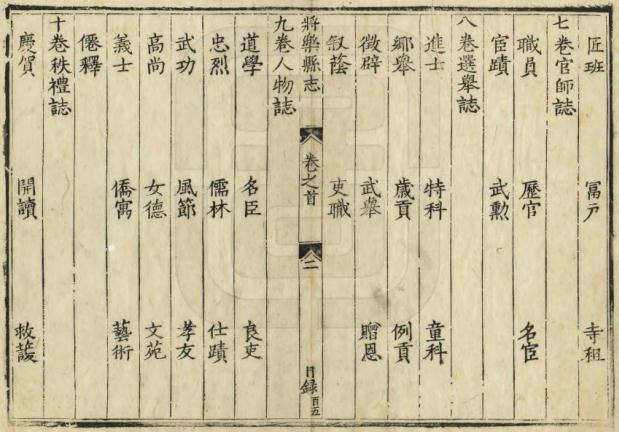 匠班 冨戶 寺租
七卷官師誌
職員 歷官 名宦
宦蹟 武勳
八卷選舉誌
進士 特科 童科
鄉舉 歲貢 例貢
徵辟 武舉 贈恩
叙蔭 吏職
將樂縣志 卷之首 二 目錄 百五
九卷人物誌
道學 名臣 良吏
忠烈 儒林 仕蹟
武功 風節 孝友
高尚 女德 文苑
義士 僑寓 藝術
僊釋
十卷秩禮誌
慶賀 開讀 救護